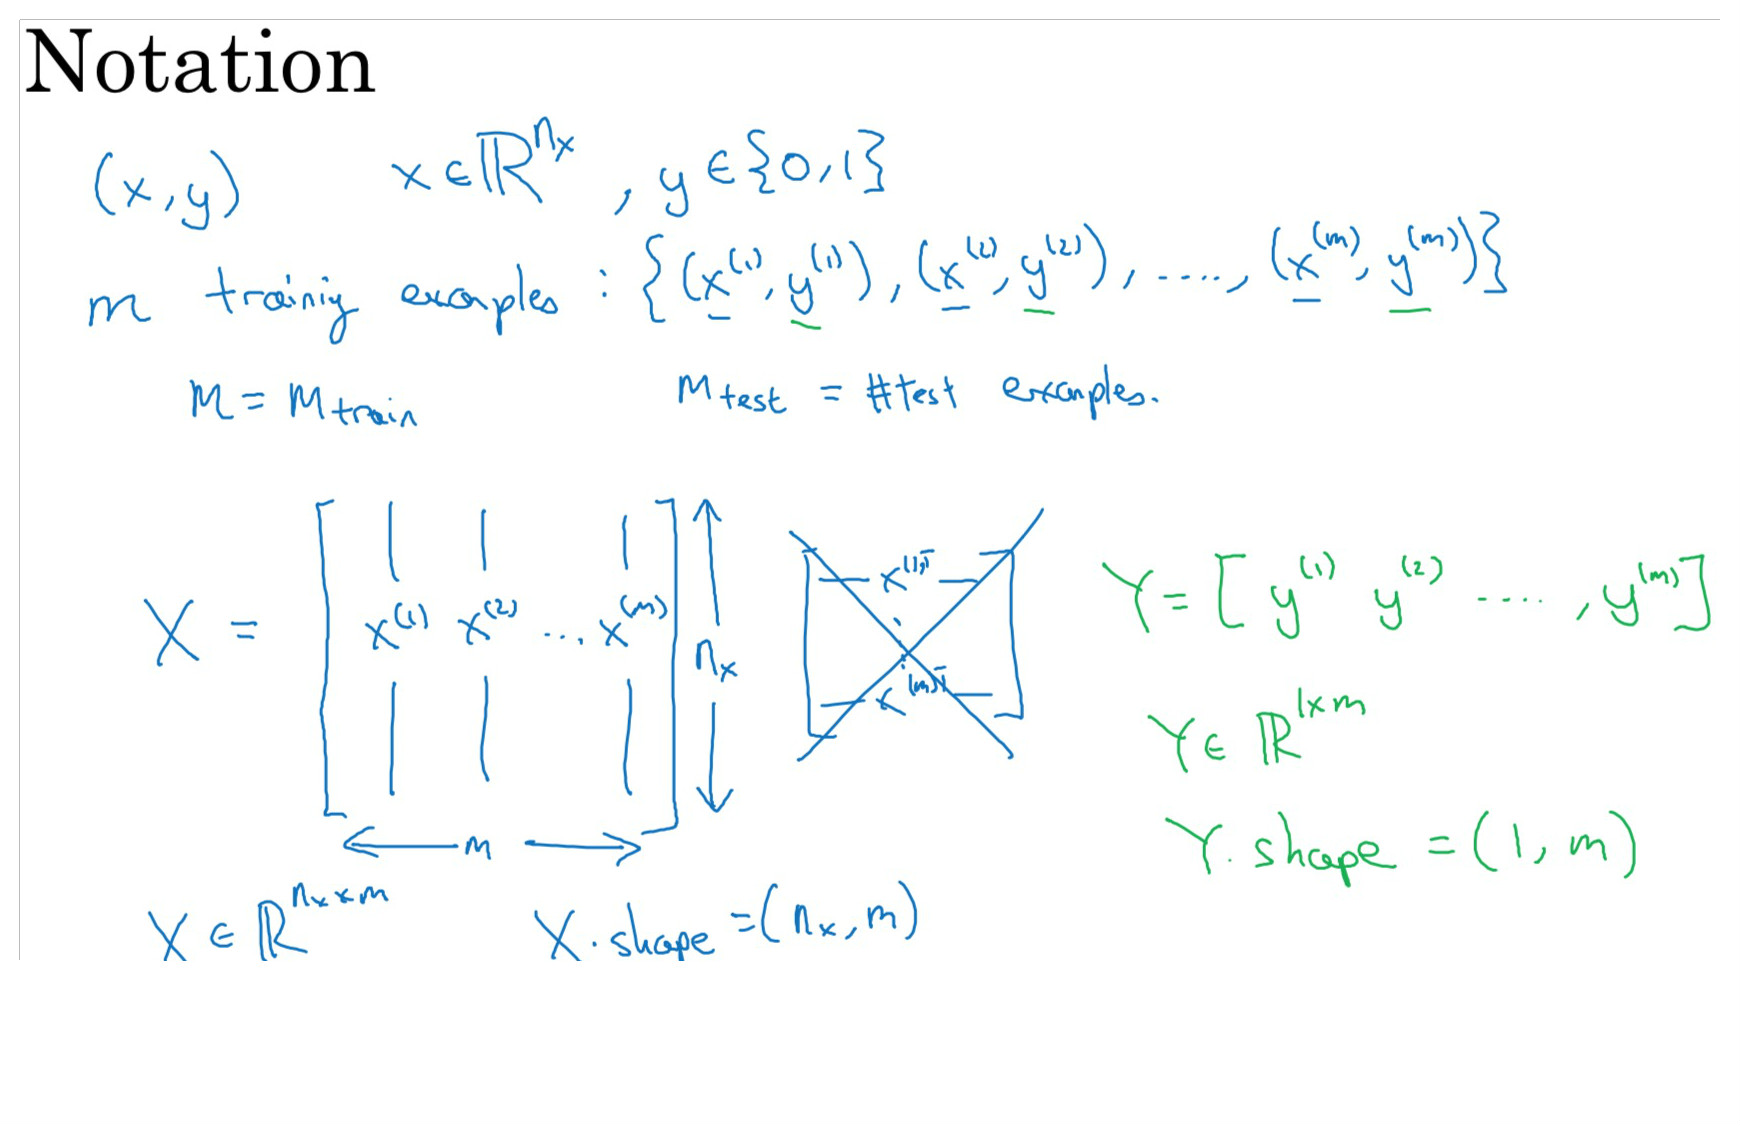 Notation
(x,y) x ∈ ℝ^{n_x}, y ∈ {0,1}
m trainiy examples : {(x^{(1)}, y^{(1)}), (x^{(2)}, y^{(2)}), ....., (x^{(m)}, y^{(m)})}
M = M_{train} M_{test} = #test examples.
X = [ x^{(1)} x^{(2)} ... x^{(m)} ] n_x
m
x^{(1)T}
x^{(m)T}
Y = [ y^{(1)} y^{(2)} ...., y^{(m)} ]
Y ∈ ℝ^{1×m}
Y.shape = (1, m)
X ∈ ℝ^{n_x × m} X.shape = (n_x, m)